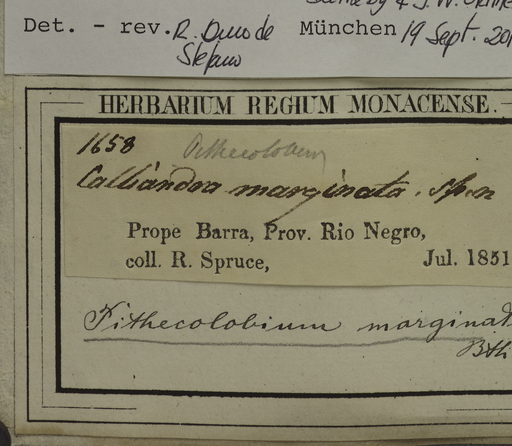 Det. - rev. R. Duno de München 19 Sept. 201
Stefano
HERBARIUM REGIUM MONACENSE.
1658 Pithecolobium
Calliandra marginata. sp. n
Prope Barra, Prov. Rio Negro,
coll. R. Spruce, Jul. 1851
Pithecolobium marginat
Bth